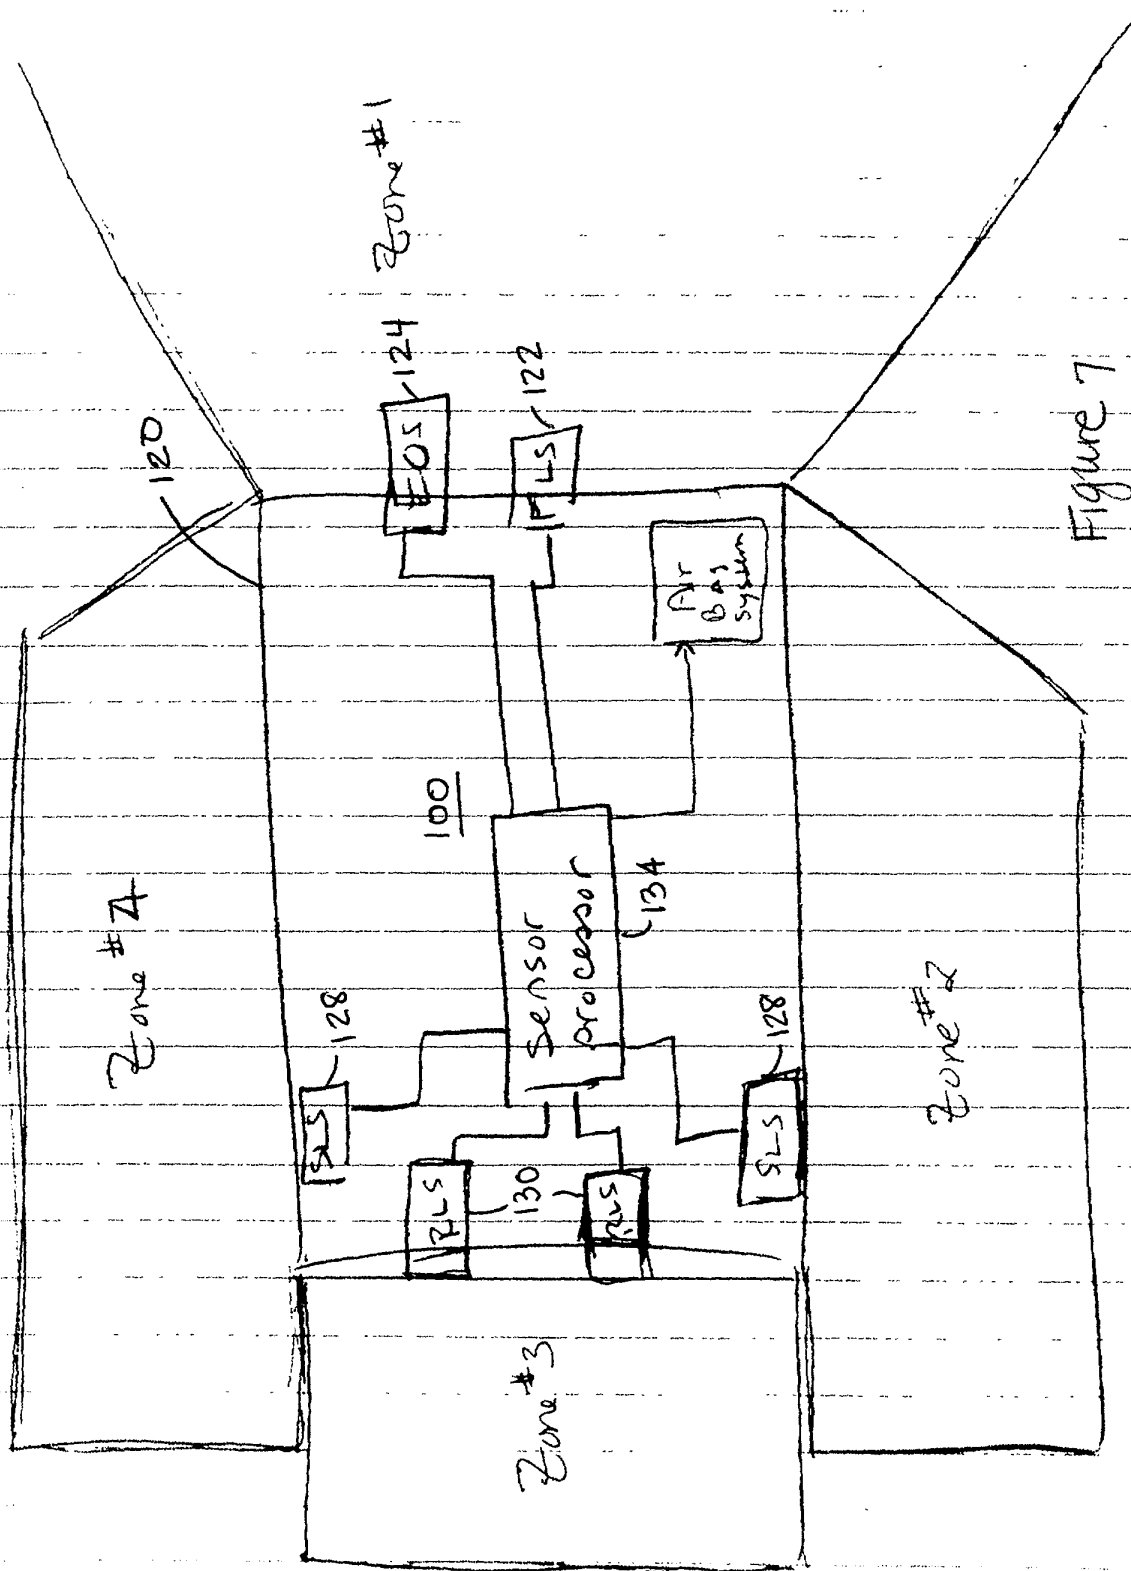 Zone #1
120
EOS
124
FLS
122
Air
Bag
System
100
Sensor
processor
134
Zone #4
SLS
128
RLS
130
RLS
SLS
128
Zone #2
Zone #3
Figure 7